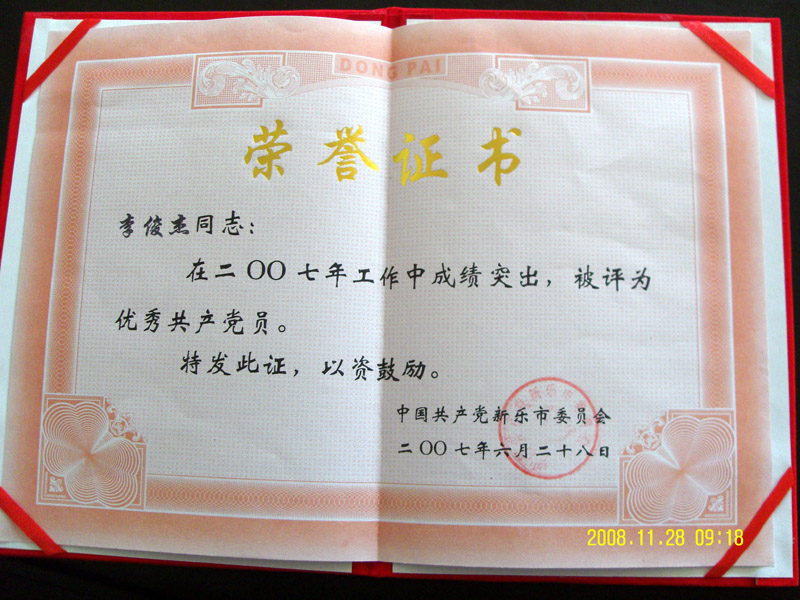 DONG PAI
荣誉证书
李俊杰同志：
在二OO七年工作中成绩突出，被评为
优秀共产党员。
特发此证，以资鼓励。
中国共产党新乐市委员会
二OO七年六月二十八日
2008.11.28 09:18